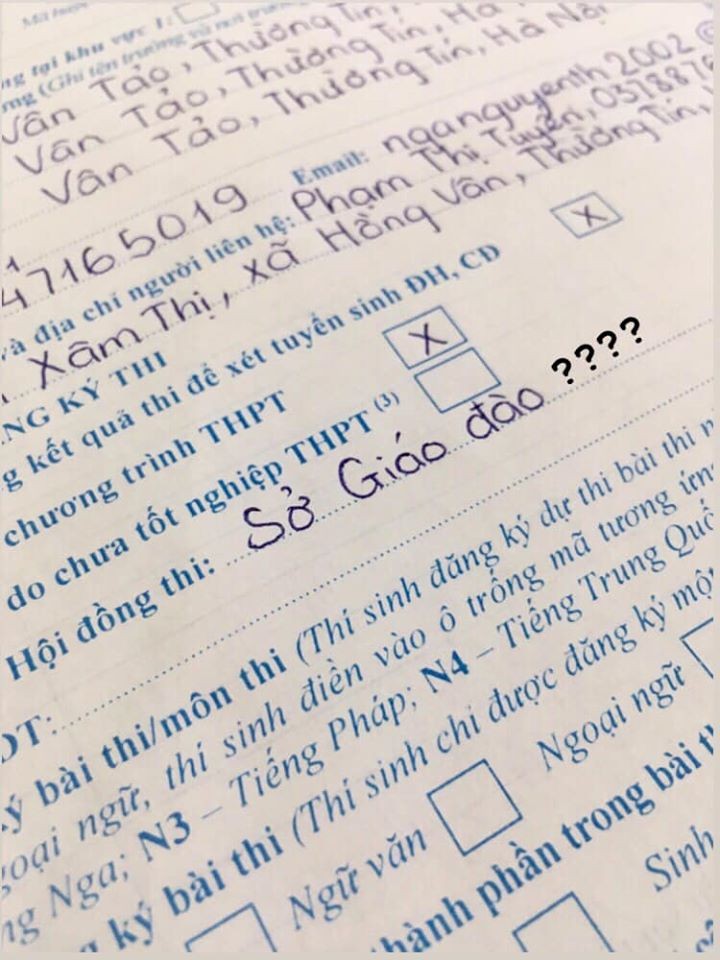 ng tại khu vực 1:
(Ghi tên trường và nơi trường
Vân Tảo, Thường Tín,
Vân Tảo, Thường Tín, Hà
Vân Tảo, Thường Tín, Hà Nội
47165019 Email: nganguyenth2002@
và địa chỉ người liên hệ: Phạm Thị Tuyền, 0378876
Xâm Thị, xã Hồng Vân, Thường Tín,
NG KÝ THI
g kết quả thi để xét tuyển sinh ĐH, CĐ X
chương trình THPT X
do chưa tốt nghiệp THPT (3)
Hội đồng thi: Sở Giáo đào ????
ĐT:
ý bài thi/môn thi (Thí sinh đăng ký dự thi bài thi
goại ngữ, thí sinh điền vào ô trống mã tương ứng
ng Nga; N3 – Tiếng Pháp; N4 – Tiếng Trung Quố
ký bài thi (Thí sinh chỉ được đăng ký một
Ngữ văn Ngoại ngữ
thành phần trong bài th
Sinh